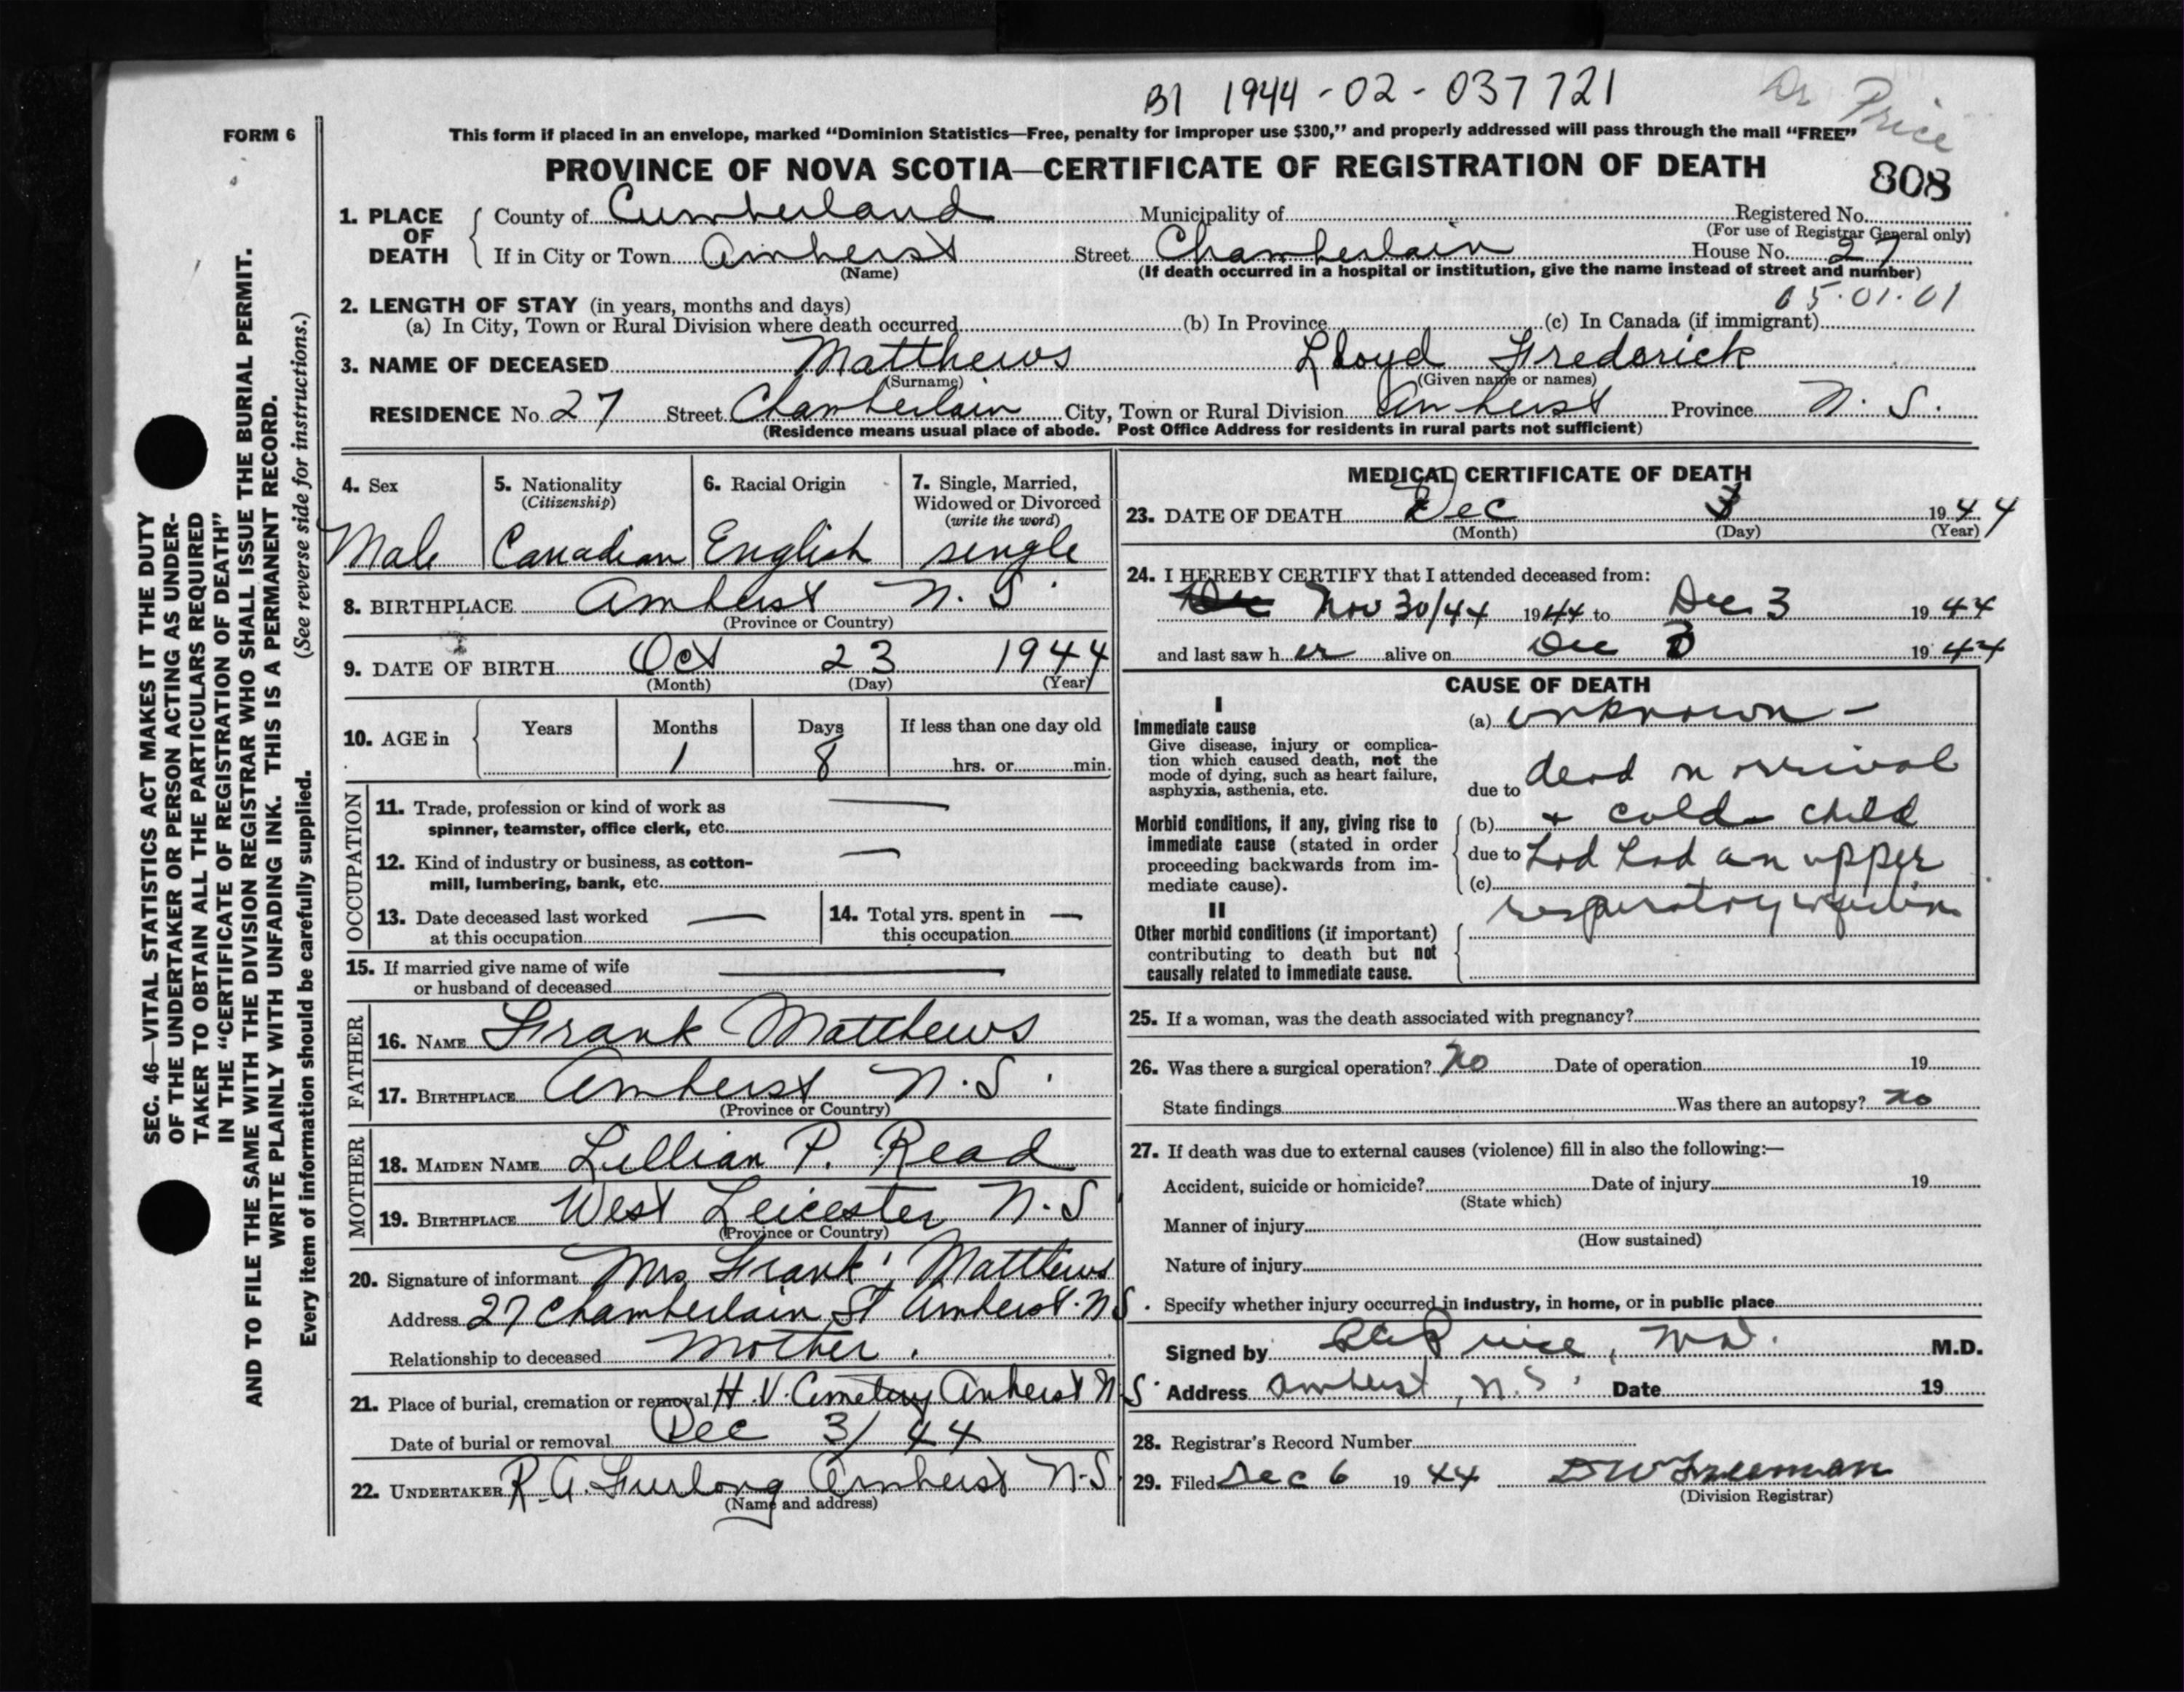 B1 1944-02-037721
Dr Price
FORM 6
This form if placed in an envelope, marked “Dominion Statistics—Free, penalty for improper use $300,” and properly addressed will pass through the mail “FREE”
PROVINCE OF NOVA SCOTIA—CERTIFICATE OF REGISTRATION OF DEATH
808
1. PLACE OF DEATH
County of Cumberland Municipality of Registered No.
(For use of Registrar General only)
If in City or Town Amherst Street Chamberlain House No. 27
(Name) (If death occurred in a hospital or institution, give the name instead of street and number)
2. LENGTH OF STAY (in years, months and days)
05.01.01
(a) In City, Town or Rural Division where death occurred (b) In Province (c) In Canada (if immigrant)
3. NAME OF DECEASED Matthews Lloyd Frederick
(Surname) (Given name or names)
RESIDENCE No. 27 Street Chamberlain City, Town or Rural Division Amherst Province N. S.
(Residence means usual place of abode. Post Office Address for residents in rural parts not sufficient)
4. Sex 5. Nationality (Citizenship) 6. Racial Origin 7. Single, Married, Widowed or Divorced (write the word)
Male Canadian English single
8. BIRTHPLACE Amherst N. S.
(Province or Country)
9. DATE OF BIRTH Oct 23 1944
(Month) (Day) (Year)
10. AGE in Years Months Days If less than one day old
1 8 hrs. or min.
OCCUPATION
11. Trade, profession or kind of work as
spinner, teamster, office clerk, etc. —
12. Kind of industry or business, as cotton-
mill, lumbering, bank, etc. —
13. Date deceased last worked at this occupation — 14. Total yrs. spent in this occupation —
15. If married give name of wife
or husband of deceased —
FATHER
16. NAME Frank Matthews
17. BIRTHPLACE Amherst N. S.
(Province or Country)
MOTHER
18. MAIDEN NAME Lillian P. Read
19. BIRTHPLACE West Leicester N. S
(Province or Country)
20. Signature of informant Mrs Frank Matthews
Address 27 Chamberlain St Amherst. N S.
Relationship to deceased Mother.
21. Place of burial, cremation or removal H. V. Cemetery Amherst N S
Date of burial or removal Dec 3/44
22. UNDERTAKER R. A. Furlong Amherst N-S
(Name and address)
MEDICAL CERTIFICATE OF DEATH
23. DATE OF DEATH Dec 3 1944
(Month) (Day) (Year)
24. I HEREBY CERTIFY that I attended deceased from:
Dec Nov 30/44 1944 to Dec 3 1944
and last saw her alive on Dec 3 1944
CAUSE OF DEATH
I
Immediate cause
Give disease, injury or complica-
tion which caused death, not the
mode of dying, such as heart failure,
asphyxia, asthenia, etc.
Morbid conditions, if any, giving rise to
immediate cause (stated in order
proceeding backwards from im-
mediate cause).
II
Other morbid conditions (if important)
contributing to death but not
causally related to immediate cause.
(a) unknown -
due to dead on arrival
(b) + cold - child
due to had had an upper
(c)
respiratory infection
25. If a woman, was the death associated with pregnancy?
26. Was there a surgical operation? No Date of operation 19
State findings Was there an autopsy? no
27. If death was due to external causes (violence) fill in also the following:—
Accident, suicide or homicide? Date of injury 19
(State which)
Manner of injury
(How sustained)
Nature of injury
Specify whether injury occurred in industry, in home, or in public place
Signed by Price, M.D. M.D.
Address Amherst, N. S. Date 19
28. Registrar's Record Number
29. Filed Dec 6 1944 D W Freeman
(Division Registrar)
SEC. 46—VITAL STATISTICS ACT MAKES IT THE DUTY
OF THE UNDERTAKER OR PERSON ACTING AS UNDER-
TAKER TO OBTAIN ALL THE PARTICULARS REQUIRED
IN THE “CERTIFICATE OF REGISTRATION OF DEATH”
AND TO FILE THE SAME WITH THE DIVISION REGISTRAR WHO SHALL ISSUE THE BURIAL PERMIT.
WRITE PLAINLY WITH UNFADING INK. THIS IS A PERMANENT RECORD.
Every item of information should be carefully supplied. (See reverse side for instructions.)